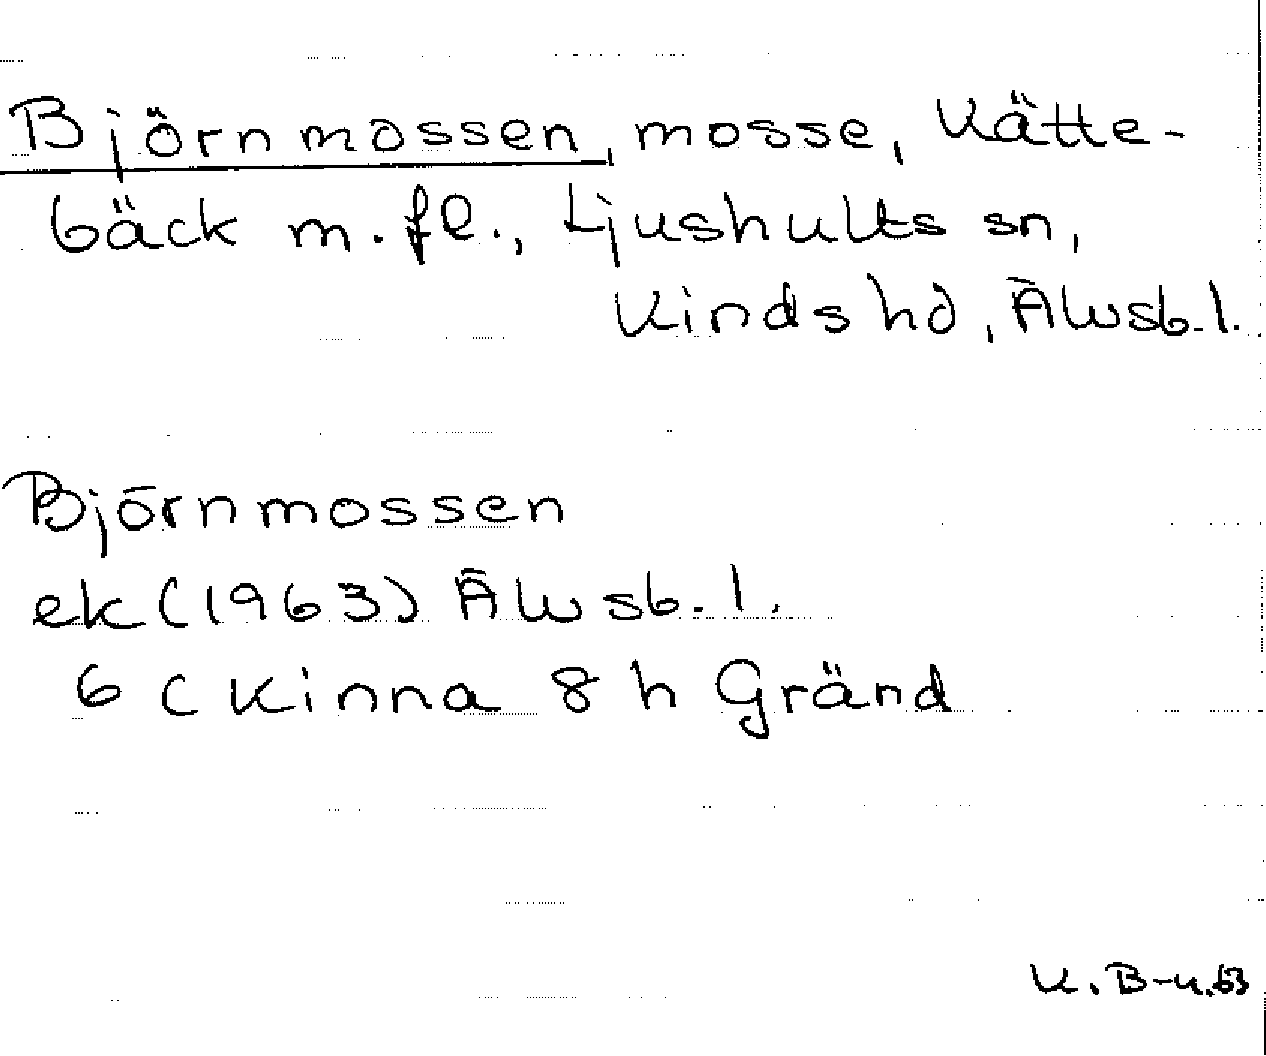 Björnmossen, mosse, Kätte-
bäck m.fl., Ljushults sn,
Kinds hd, Älvsb.l.
Björnmossen
ek (1963) Älvsb.l.
6 C Kinna 8 h Gränd
K.B-n.63